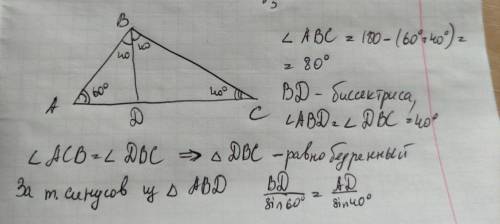 B
40
40
A
60°
D
40°
C
∠ABC = 180 - (60°+40°) =
= 80°
BD - биссектриса,
∠ABD = ∠DBC = 40°
∠ACB = ∠DBC ⇒ △DBC - равнобедренный
За т. синусов из △ABD BD/sin60° = AD/sin40°